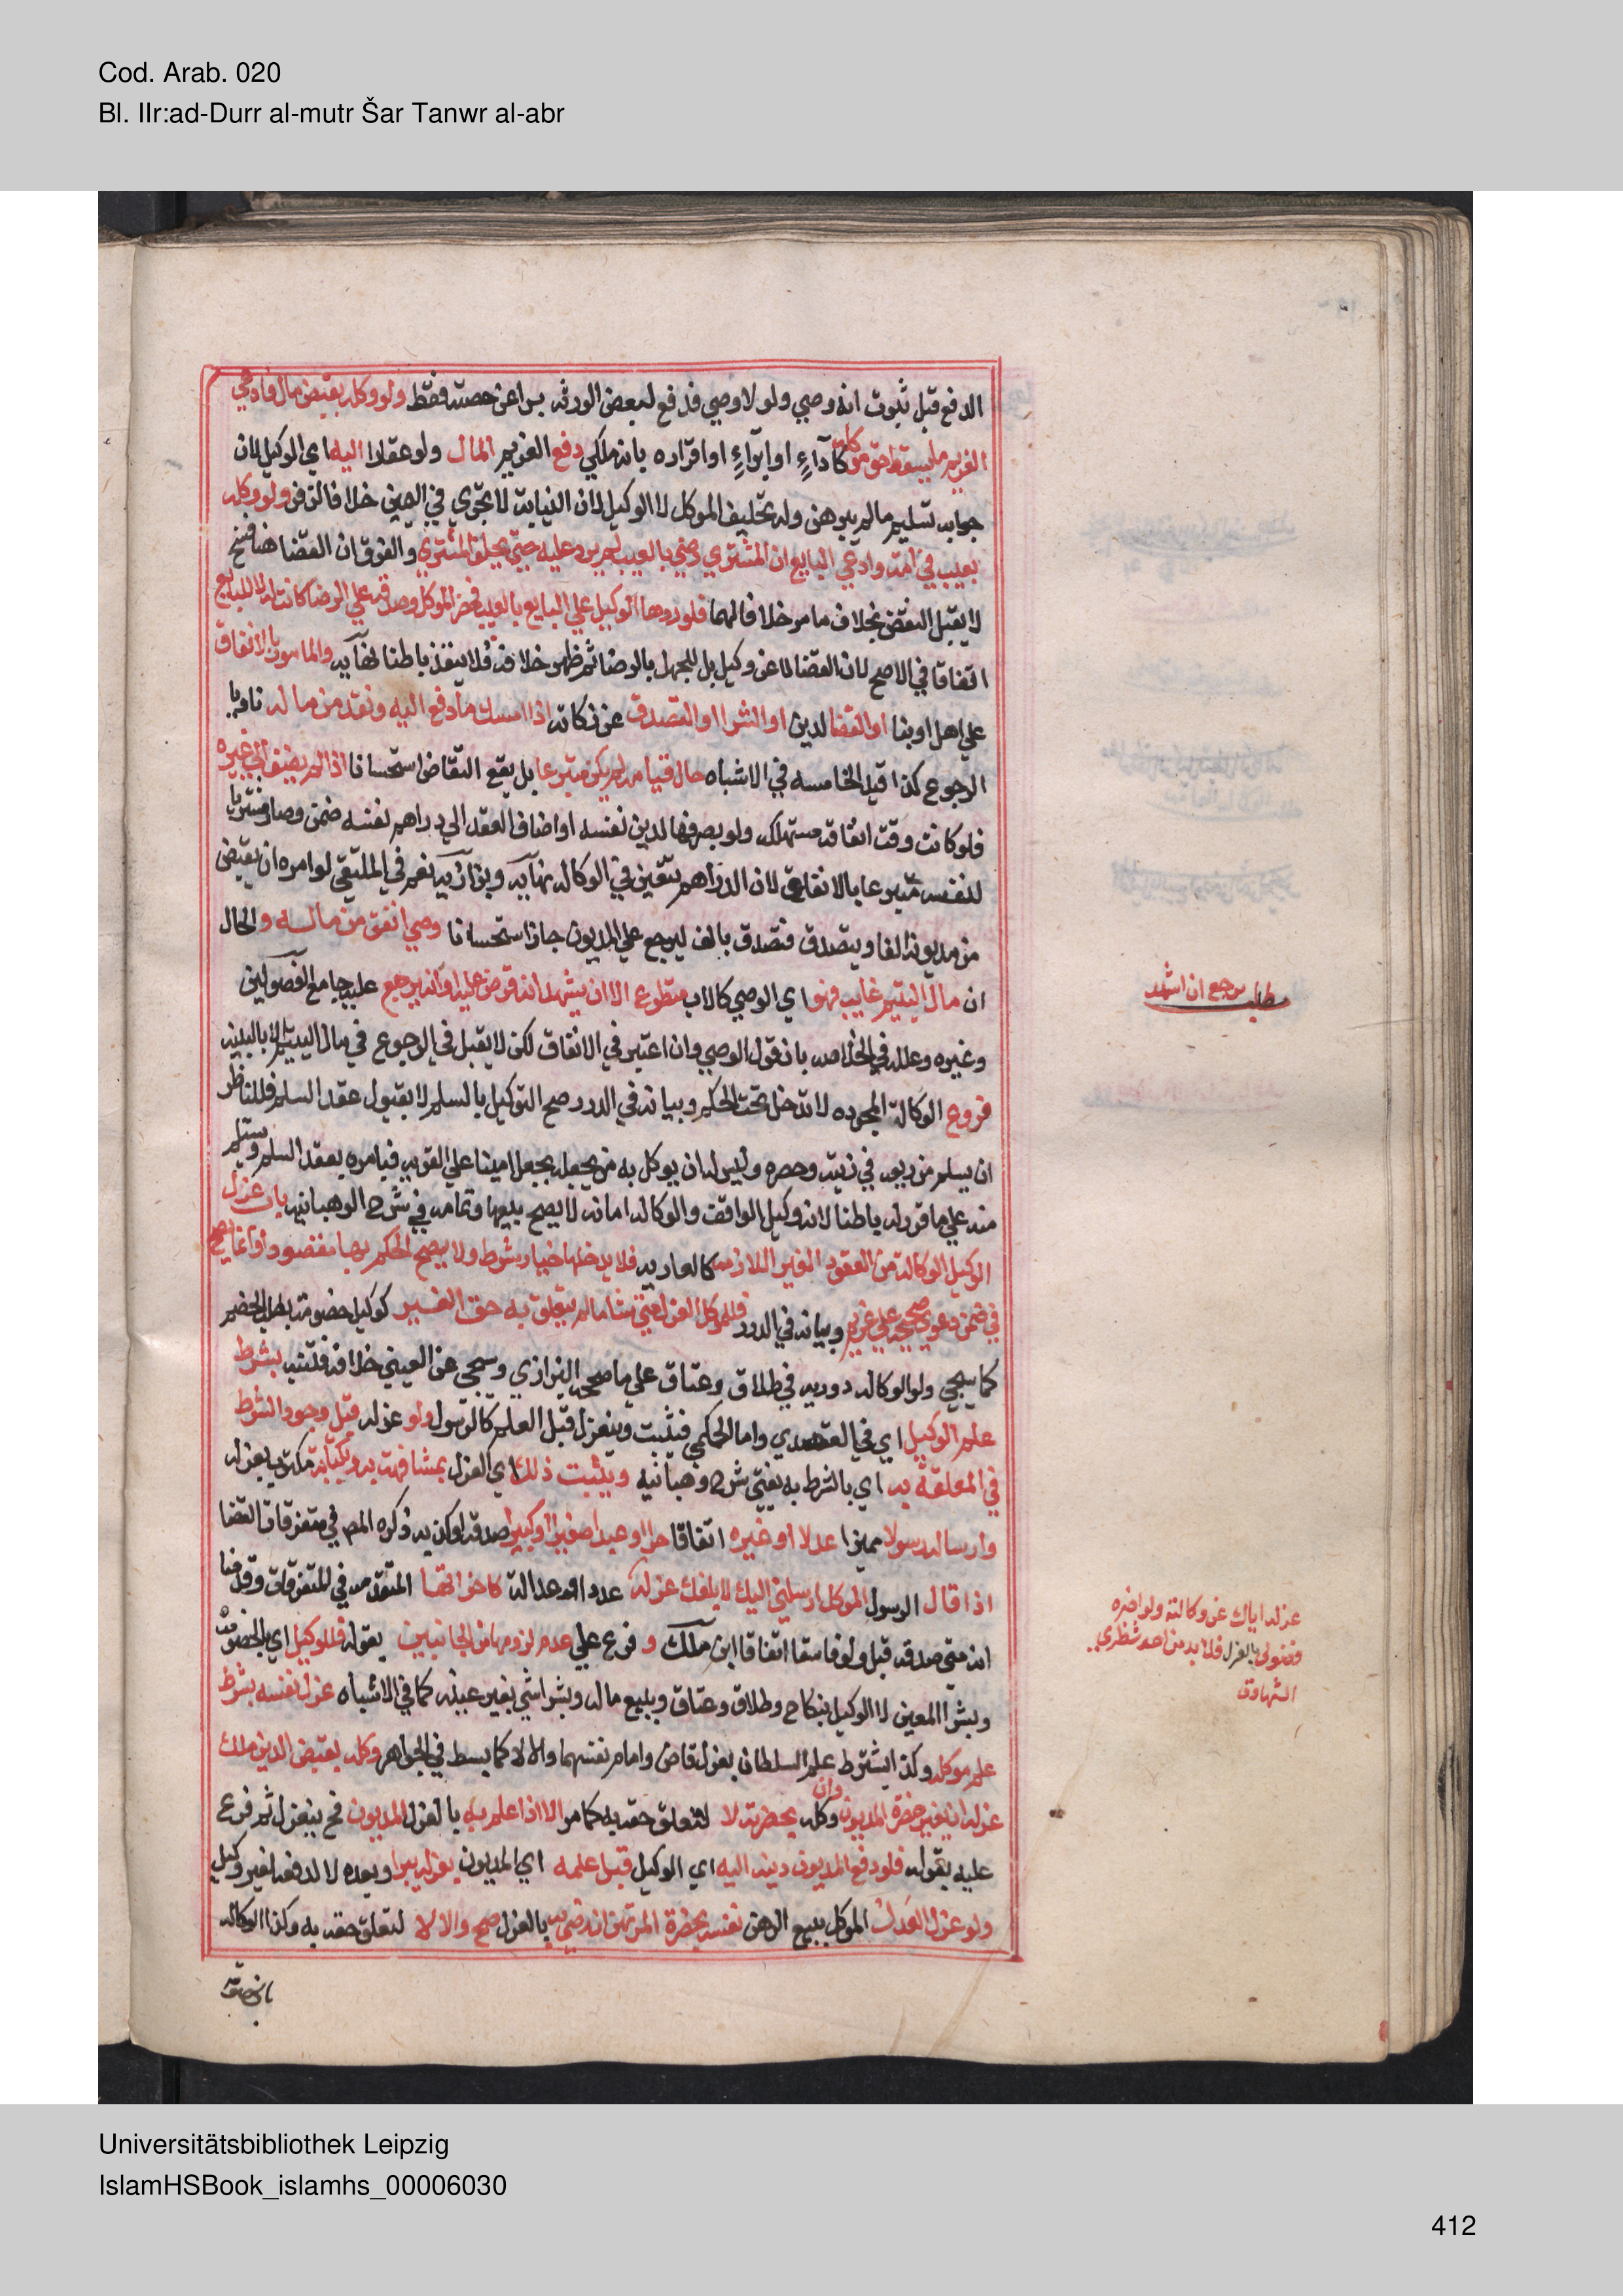 Cod. Arab. 020
Bl. IIr:ad-Durr al-mutr Šar Tanwr al-abr
الدفع قبل ثبوت انه وصي ولو لا وصي فدفع لبعض الورثه برا عن حصته فقط ولو وكله بقبض مال فادعي
الغريم ما يسقط حق موكله كآداءٍ او ابراءٍ او اقراره بانه ملكي دفع الغريم المال ولو عقارا اليه اي الوكيل لان
جوابه تسليم ما لم يبرهن وله تحليف الموكل لا الوكيل لان النيابة لا تجري في اليمين خلافا لزفر ولو وكله
بعيب في امة وادعي البايع ان المشتري رضي بالعيب لم يرد عليه حتي يحلف المشتري والفرق ان القضا هنا فسخ
لا يقبل النقض بخلاف ما مر خلافا لهما فلو ردها الوكيل علي البايع بالعيب فحضر الموكل وصدقه علي الرضا كانت له لا للبايع
اتفاقا في الاصح لان القضا لا عن دليل بل للجهل بالرضا ثم ظهر خلافه فلا ينفذ باطنا نهاية والمامور بالانفاق
علي اهل او بنا او القضا لدين او الشرا او التصدق عن زكاته اذا امسك ما دفع اليه ونقد من ماله ناويا
الرجوع كذا قيد الخامسه في الاشباه حال قيامه لم يكن متبرعا بل يقع التقاص استحسانا اذا لم يضف الي غيره
فلو كانت وقت انفاقه مستهلكه ولو بصرفها لدين نفسه او اضاف العقد الي دراهم نفسه ضمن وصار مشتريا
لنفسه متبرعا بالانفاق لان الدراهم تتعين في الوكاله نهاية وبزازيه نعم في الملتقي لو امره ان يقبض
من مديونه الفا ويتصدق فتصدق بالف ليرجع علي المديون جاز استحسانا وصي انفق من ماله والحال
ان مال اليتيم غايب فهو اي الوصي كالاب متطوع الا ان يشهد انه قرض عليه او انه يرجع عليه جامع الفصولين
وغيره وعلله في الخلاصه بان قول الوصي وان اعتبر في الانفاق لكن لا يقبل في الرجوع في مال اليتيم الا بالبينه
فروع الوكالة المجرده لا تدخل تحت الحكم وبيانه في الدرر صح التوكيل بالسلم لا بقبول عقد السلم فللناظر
ان يسلم من ريعه في زيته وحصره وليس له ان يوكل به من يجعله بجعل امينا علي القريه فيامره بعقد السلم ويستلم
منه علي ما قرر له باطنا لانه وكيل الواقف والوكاله امانه لا يصح بيعها وتمامه في شرح الوهبانيه باب عزل
الوكيل الوكالة من العقود الغير اللازمه كالعاريه فلا يدخلها خيار شرط ولا يصح الحكم بها مقصودا وانما يصح
في ضمن دعوي صحيحه علي غريم وبيانه في الدرر فللموكل العزل متي شا ما لم يتعلق به حق الغير كوكيل خصومة بطلب الخصم
كما سيجي ولو الوكاله دوريه في طلاق وعتاق علي ما صححه البزازي وسيجي عن العيني خلافه فتنبه بشرط
علم الوكيل اي في القصدي واما الحكمي فيثبت وينعزل قبل العلم كالرسول ولو عزله قبل وجود الشرط
في المعلقة به اي بالشرط به يفتي شرح وهبانيه ويثبت ذلك اي العزل بمشافهته به وبكتابة مكتوب بعزله
وارساله رسولا مميزا عدلا او غيره اتفاقا حرا او عبدا صغيرا او كبيرا صدقه او كذبه ذكره المص في متفرقات القضا
اذا قال الرسول الموكل ارسلني اليك لابلغك عزله عددا او عدالة كاخواتها المتقدمه في المتفرقات وقدمنا
انه متي صدقه قبل ولو فاسقا اتفاقا ابن ملك و فرع علي عدم لزومها من الجانبين بقوله فللوكيل اي بالخصومة
وبشرا المعين لا الوكيل بنكاح وطلاق وعتاق وبيع ماله وبشرا شي بغير عينه كما في الاشباه عزل نفسه بشرط
علم موكله وكذا يشترط علم السلطان بعزل قاض وامام نفسهما والا لا كما بسط في الجواهر وكله بقبض الدين ملك
عزله ان بغير حضرة المديون وان وكله بحضرته لا لتعلق حقه به كما مر الا اذا علم به بالعزل المديون فح ينعزل ثم فرع
عليه بقوله فلو دفع المديون دينه اليه اي الوكيل قبل علمه اي المديون بعزله يبرا وبعده لا لدفعه لغير وكيل
ولو عزل العدل الموكل ببيع الرهن نفسه بحضرة المرتهن ان رضي به بالعزل صح والا لا لتعلق حقه به وكذا الوكاله
مطلب يرجع ان اشهد
عزله اياك عن وكالته ولو اخبره
فضولي بالعزل فلا بد من احد شطري
الشهادة
Universitätsbibliothek Leipzig
IslamHSBook_islamhs_00006030
412